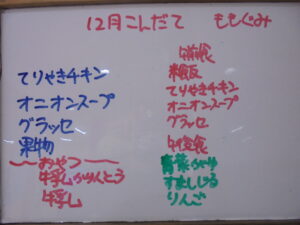 12月こんだて ももぐみ
てりやきチキン
オニオンスープ
グラッセ
果物
おやつ
牛乳 かりんとう
牛乳
午前食
米飯
てりやきチキン
オニオンスープ
グラッセ
午後食
すましじる
りんご